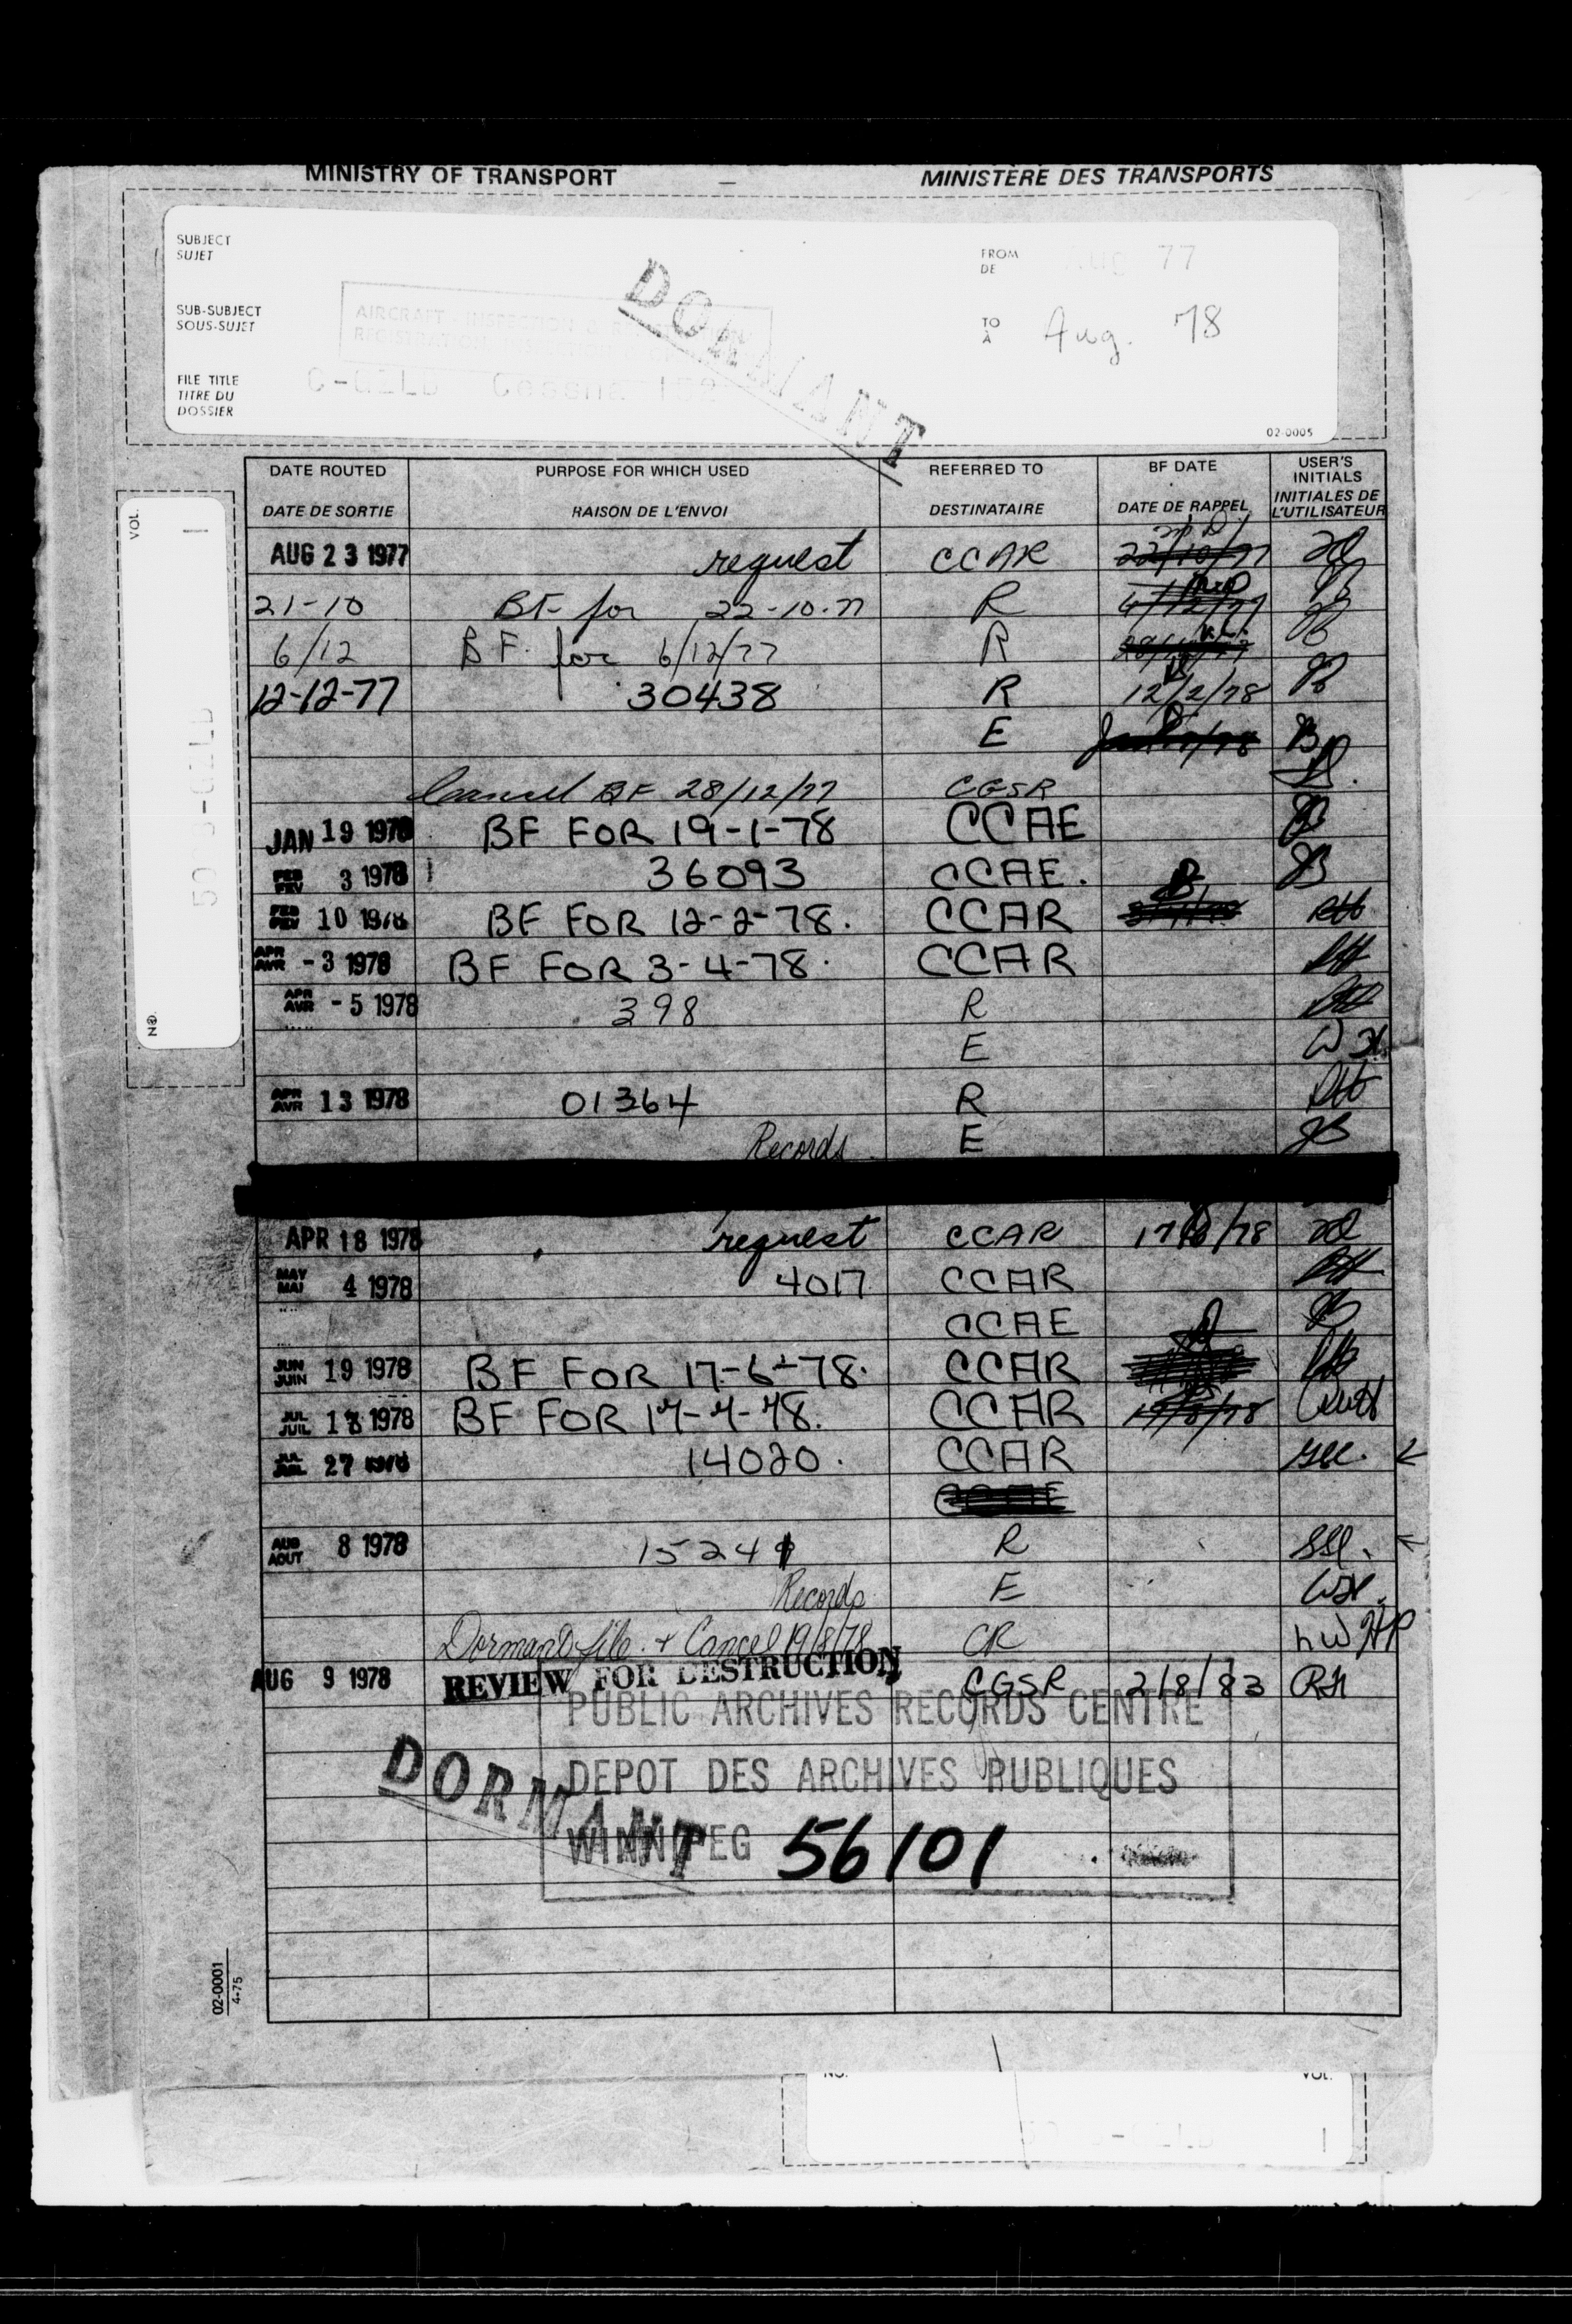 MINISTRY OF TRANSPORT — MINISTÈRE DES TRANSPORTS
SUBJECT
SUJET
FROM
DE
AUG 77
SUB-SUBJECT
SOUS-SUJET
AIRCRAFT - INSPECTION &
TO
A
Aug. 78
FILE TITLE
TITRE DU
DOSSIER
C-GZLD Cessna
DORMANT
02-0005
DATE ROUTED PURPOSE FOR WHICH USED REFERRED TO BF DATE USER'S INITIALS
DATE DE SORTIE RAISON DE L'ENVOI DESTINATAIRE DATE DE RAPPEL INITIALES DE L'UTILISATEUR
VOL. 1
NO.
AUG 23 1977 request CCAR 22/10/77
21-10 BF for 22-10-77 R 6/12/77
6/12 B.F. for 6/12/77 R
12-12-77 30438 R 12/2/78
E
Cancel BF 28/12/77 CGSR
JAN 19 1978 BF FOR 19-1-78 CCAE
FEB FEV 3 1978 36093 CCAE. JB
FEB FEV 10 1978 BF FOR 12-2-78. CCAR
APR AVR -3 1978 BF FOR 3-4-78. CCAR
APR AVR -5 1978 398 R
E
APR AVR 13 1978 01364 R
Records E JB
APR 18 1978 request CCAR 17/6/78
MAY MAI 4 1978 4017 CCAR
CCAE
JUN JUIN 19 1978 BF FOR 17-6-78. CCAR
JUL JUIL 18 1978 BF FOR 17-7-78. CCAR
JUL JUIL 27 1978 14020. CCAR
CCAE
AUG AOUT 8 1978 1524 R
Records E
Dormant file + Cancel 19/8/78 CR
AUG 9 1978 REVIEW FOR DESTRUCTION CGSR 2/8/83
PUBLIC ARCHIVES RECORDS CENTRE
DEPOT DES ARCHIVES PUBLIQUES
WINNIPEG 56101
DORMANT
02-0001
4-75
NO. VOL.
1